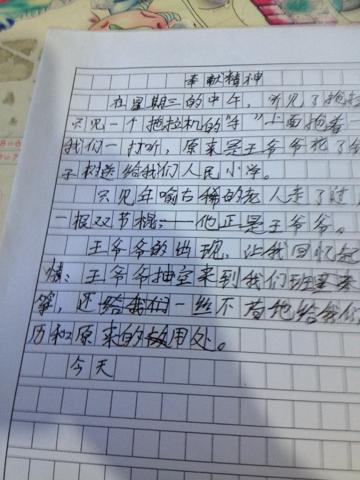 奉献精神
在星期三的中午,听见了拖拉
只见一个拖拉机的"手"上面抱着一
我们一打听,原来是王爷爷
子树送给我们人民小学。
只见年喻古稀的老人走了过
一报双节棍——他正是王爷爷。
王爷爷的出现,让我回忆起
情:王爷爷抽空来到我们班里来
等,还给我们一丝不苟地给我们
历和原来的用处。
今天